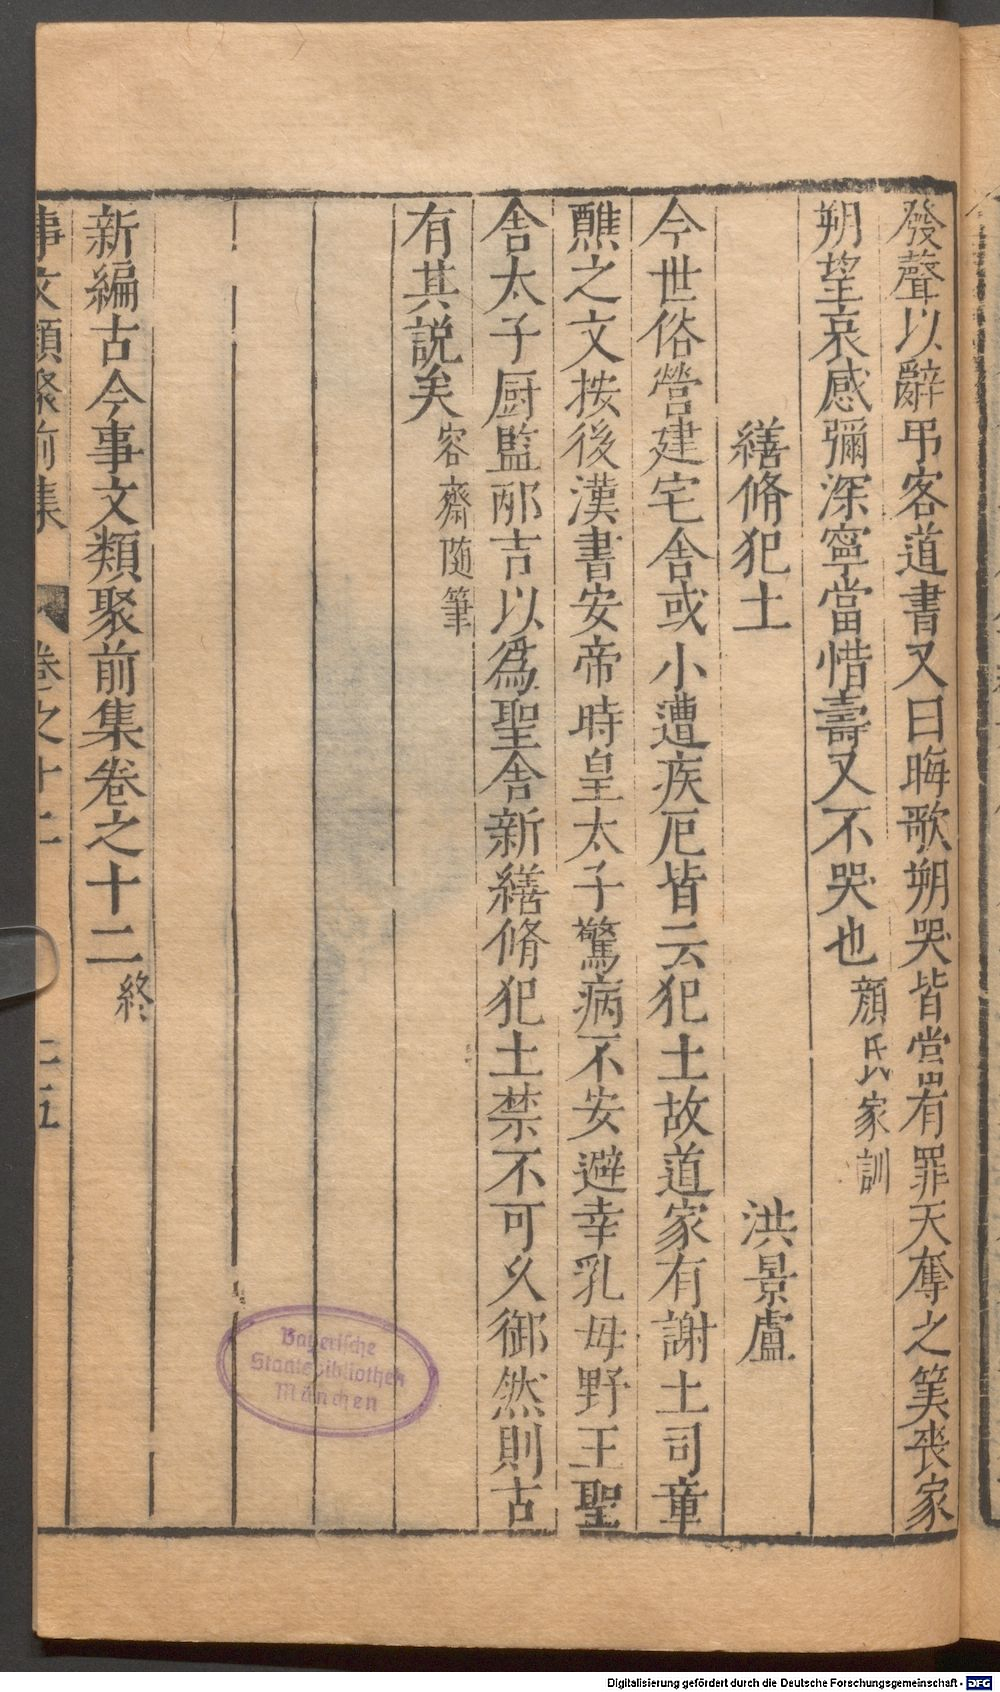 發聲以辭弔客道書又曰晦歌朔哭皆當有罪天奪之筭喪家
朔望哀感彌深寧當惜壽又不哭也顔氏家訓
繕脩犯土 洪景盧
今世俗營建宅舍或小遭疾厄皆云犯土故道家有謝土司章
醮之文按後漢書安帝時皇太子驚病不安避幸乳母野王聖
舍太子厨監邴吉以爲聖舍新繕脩犯土禁不可久御然則古
有其説矣容齋随筆
新編古今事文類聚前集卷之十二終
事文類聚前集 卷之十二 二五
Bayerische
Staatsbibliothek
München
Digitalisierung gefördert durch die Deutsche Forschungsgemeinschaft - DFG